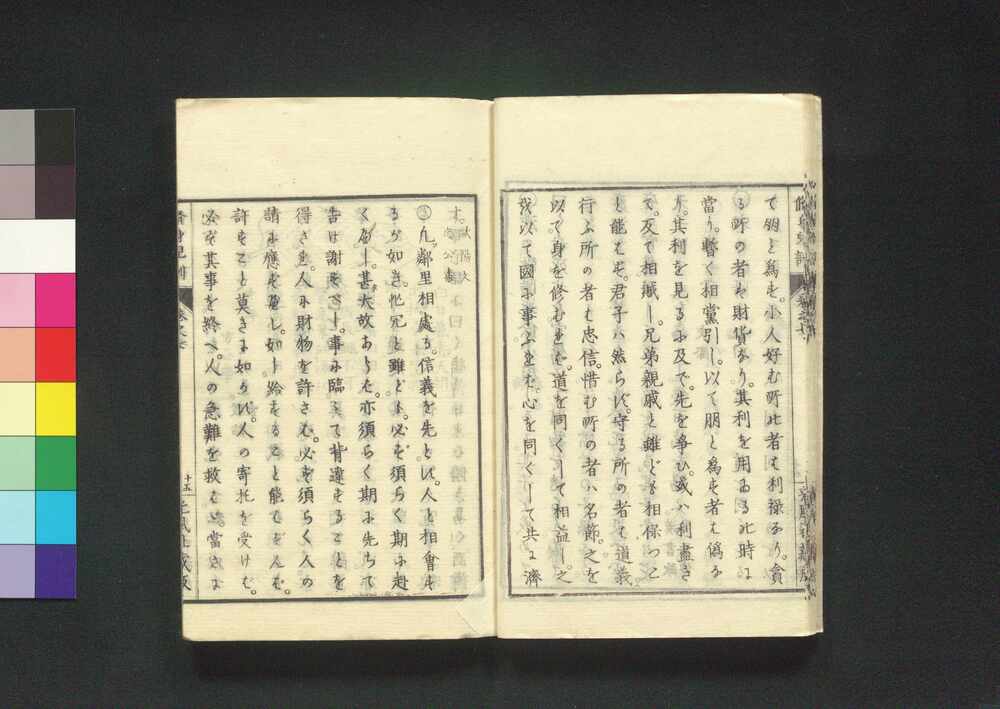 て朋と為す。小人好む所此者は利禄なり。貪
る所の者は財貨なり。其利を同ゐる此時に
當り。暫く相黨引し。以て朋と為す者は偽な
り。其利を見るに及で。先を争ひ。或ハ利盡き
て。反て相賊し。兄弟親戚と雖ども相保つこ
と能はず。君子ハ然らず。守る所の者は道義。
行ふ所の者は忠信。惜む所の者ハ名節。之を
以て身を修むれば。道を同くして相益し。之
を以て國に事ふれば。心を同くして共に濟
す。歐陽文忠公
○凡鄰里相處る。信義を先とし。人と相會す
るが如き。怱冗と雖ども。必ず須らく期に赴
くべし。甚大故あらば。亦須らく期に先ちて
告け謝すべし。事に臨て背違することを
得ざれ。人に財物を許さば。必ず須らく人の
請に應ずべし。如し給すること能ハざれば。
許すこと莫きに如かず。人の寄托を受けば。
必ず其事を終へ。人の急難を救はゞ。當さに
修身児訓 巻之七
十五